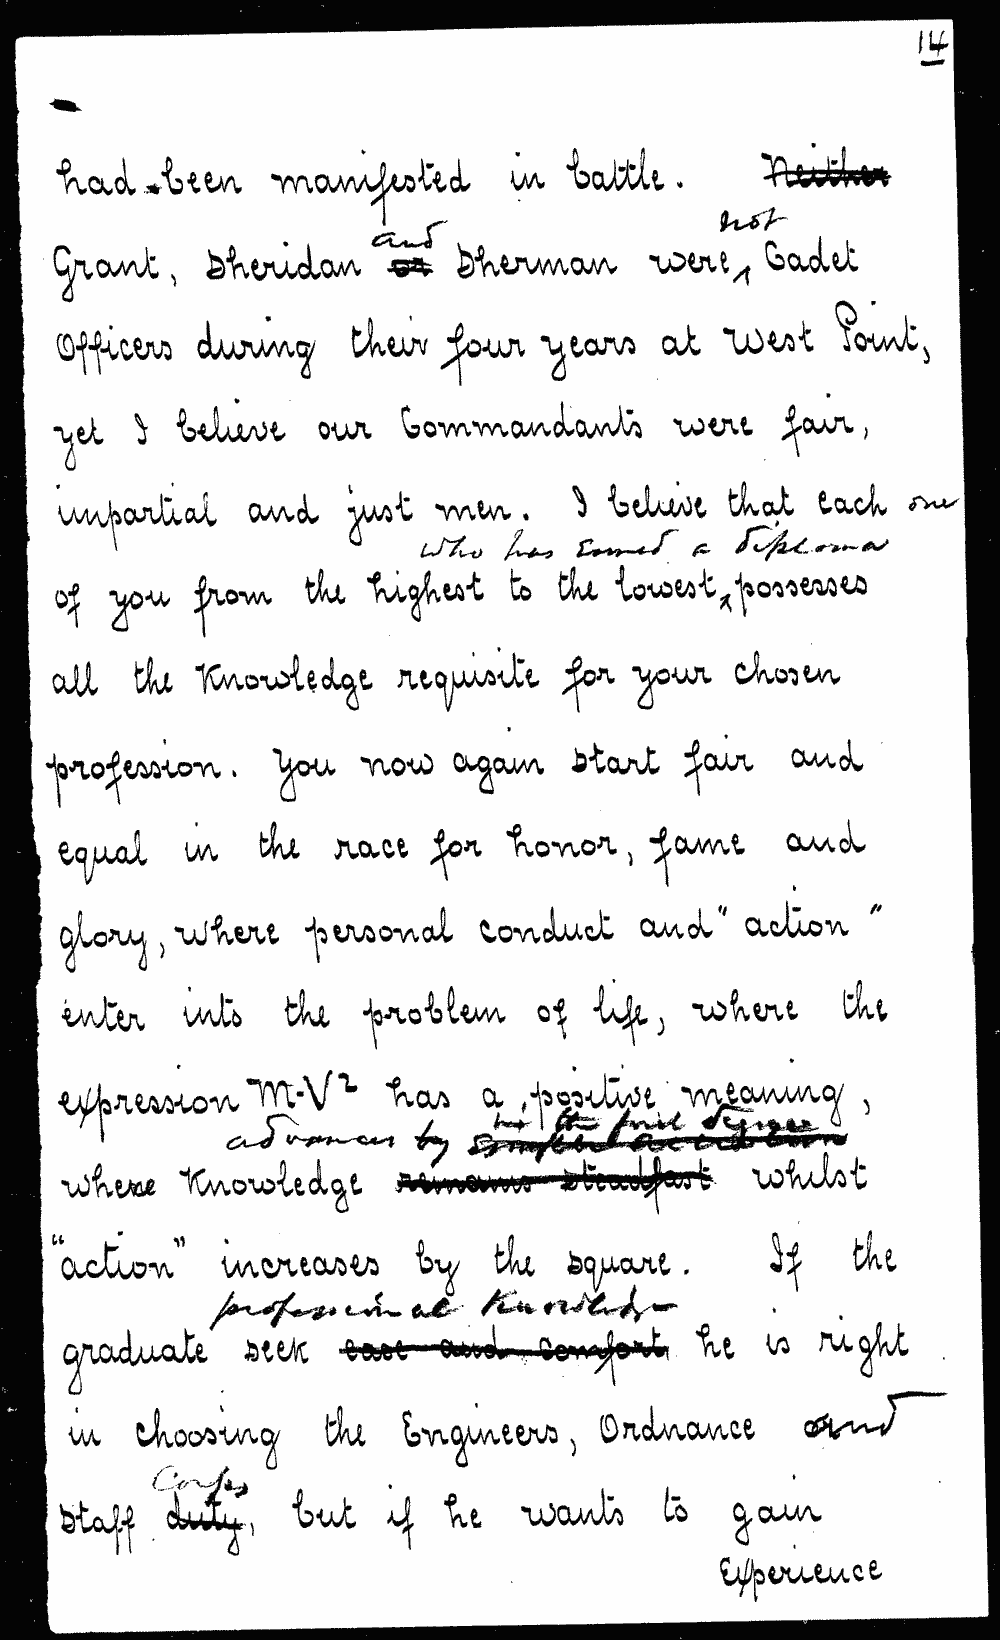 14
had been manifested in battle. Neither
and not
Grant, Sheridan or Sherman were Cadet
Officers during their four years at West Point,
yet I believe our Commandants were fair,
impartial and just men. I believe that each one
who has earned a diploma
of you from the highest to the lowest possesses
all the Knowledge requisite for your chosen
profession. You now again start fair and
equal in the race for honor, fame and
glory, where personal conduct and "action"
enter into the problem of life, where the
expression M.V² has a positive meaning,
the first degree
advances by
where Knowledge remains steadfast whilst
"action" increases by the square. If the
professional Knowledge
graduate seek ease and comfort, he is right
in choosing the Engineers, Ordnance and
Corps
Staff duty, but if he wants to gain
Experience